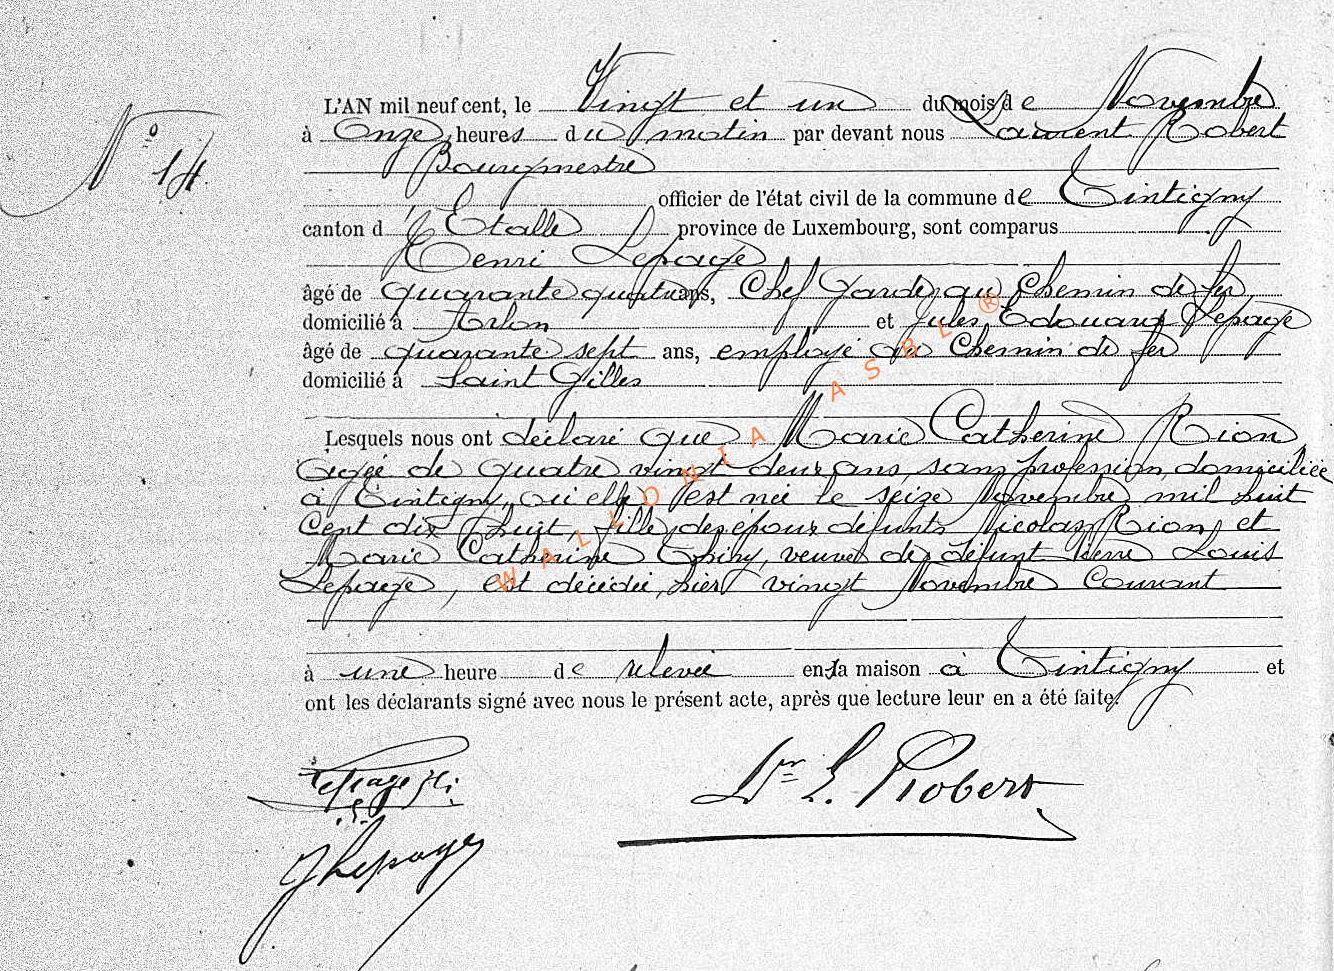 N° 14
L'AN mil neuf cent, le Vingt et un du mois de Novembre
à Onze heures du matin par devant nous Laurent Robert
Bourgmestre
officier de l'état civil de la commune de Tintigny
canton d'Etalle province de Luxembourg, sont comparus
Henri Lepage
âgé de quarante quatre ans, Chef garde au Chemin de fer
domicilié à Arlon et Jules Edouard Lepage
âgé de quarante sept ans, employé au Chemin de fer
domicilié à Saint Gilles
Lesquels nous ont déclaré que Marie Catherine Rion
âgée de quatre vingt deux ans, sans profession, domiciliée
à Tintigny, où elle est née le seize Novembre mil huit
Cent dix huit, fille des époux défunts Nicolas Rion et
Marie Catherine Thiry, veuve de défunt Pierre Louis
Lepage, est décédée, hier vingt Novembre Courant
à une heure de relevée en sa maison à Tintigny et
ont les déclarants signé avec nous le présent acte, après que lecture leur en a été faite.
Lepage Hi
Dr L. Robert
J Lepage
WALLONIA ASBL ®